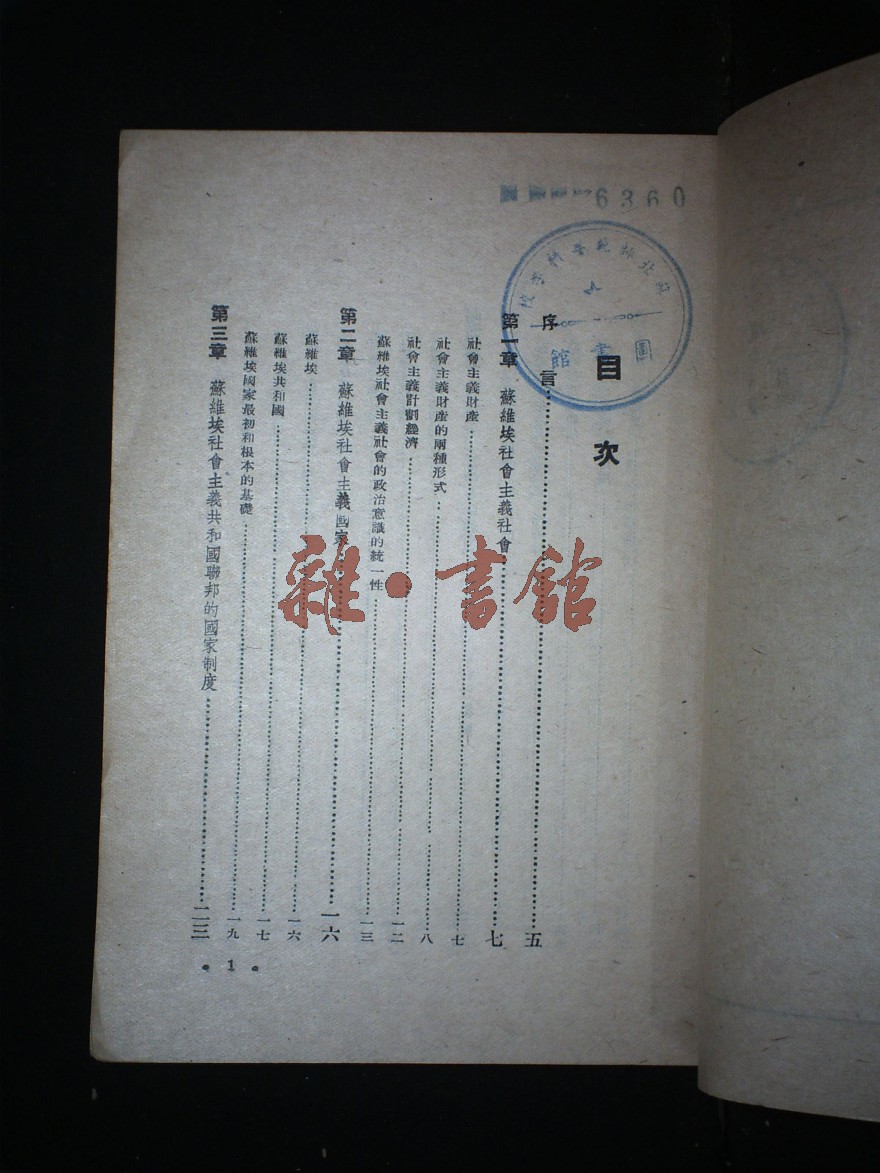 6360
圖書館
目次
序言……五
第一章 蘇維埃社會主義社會……七
社會主義財產……七
社會主義財產的兩種形式……八
社會主義計劃經濟……一二
蘇維埃社會主義社會的政治意識的統一性……一三
第二章 蘇維埃社會主義國家……一六
蘇維埃……一六
蘇維埃共和國……一七
蘇維埃國家最初和根本的基礎……一九
第三章 蘇維埃社會主義共和國聯邦的國家制度……二三
• 1 •
雜•書館